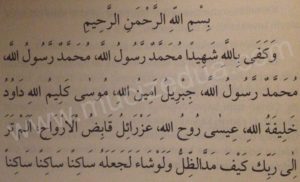 بِسْمِ اللَّهِ الرَّحْمَنِ الرَّحِيمِ
وَكَفَى بِاللَّهِ شَهِيدًا مُحَمَّدٌ رَّسُولُ اللَّهِ، مُحَمَّدٌ رَّسُولُ اللَّهِ،
مُحَمَّدٌ رَّسُولُ اللَّهِ، جِبْرِيلُ اَمِينُ اللَّهِ، مُوسَى كَلِيمُ اللَّهِ دَاوُدَ
خَلِيفَةُ اللَّهِ، عِيسَى رُوحُ اللَّهِ، عَزْرَائِلُ قَابِضُ الْأَرْوَاحِ، اَلَمْ تَرَ
اِلَى رَبِّكَ كَيْفَ مَدَّ الظِّلَّ وَلَوْ شَاءَ لَجَعَلَهُ سَاكِنًا سَاكِنًا سَاكِنًا